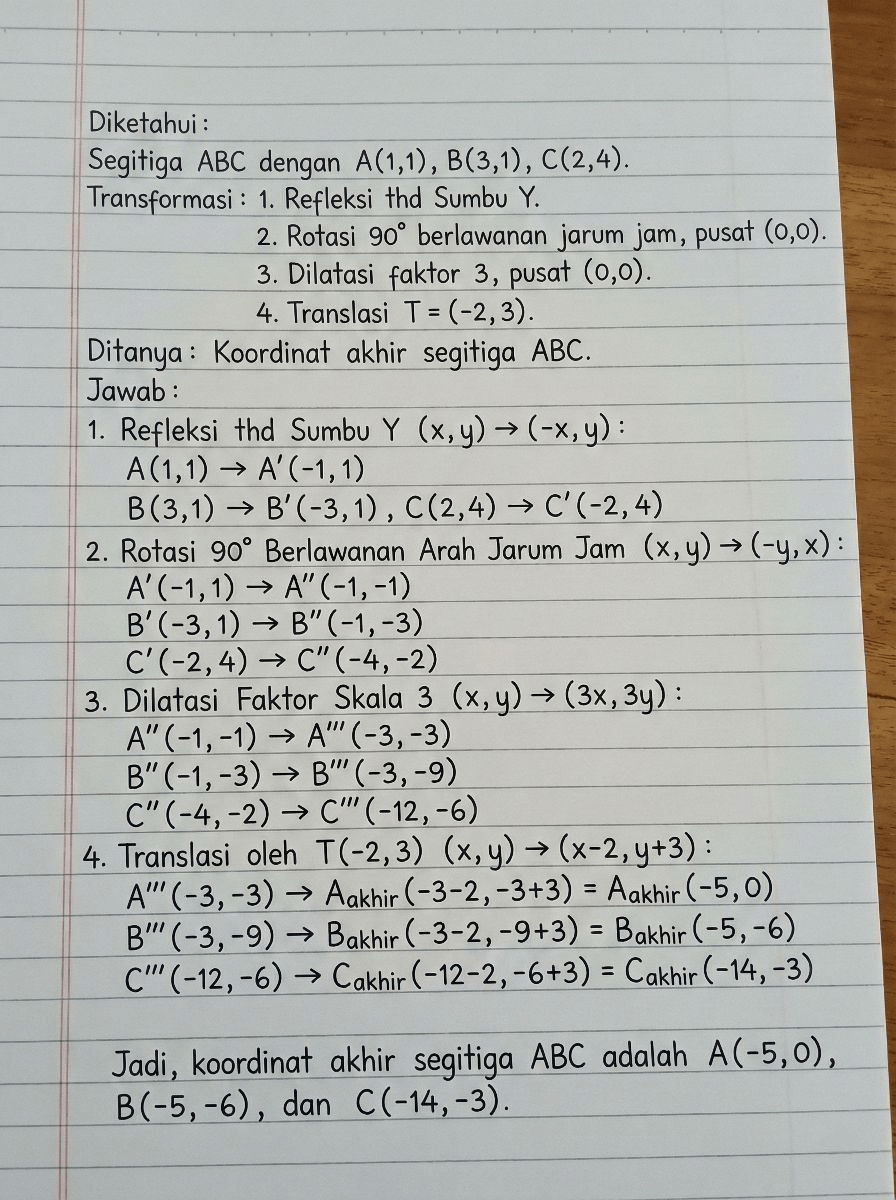 Diketahui :
Segitiga ABC dengan A(1,1), B(3,1), C(2,4).
Transformasi : 1. Refleksi thd Sumbu Y.
2. Rotasi 90° berlawanan jarum jam, pusat (0,0).
3. Dilatasi faktor 3, pusat (0,0).
4. Translasi T = (-2, 3).
Ditanya : Koordinat akhir segitiga ABC.
Jawab :
1. Refleksi thd Sumbu Y (x, y) → (-x, y) :
A(1,1) → A′(-1, 1)
B(3,1) → B′(-3, 1) , C(2,4) → C′(-2, 4)
2. Rotasi 90° Berlawanan Arah Jarum Jam (x, y) → (-y, x) :
A′(-1, 1) → A″(-1, -1)
B′(-3, 1) → B″(-1, -3)
C′(-2, 4) → C″(-4, -2)
3. Dilatasi Faktor Skala 3 (x, y) → (3x, 3y) :
A″(-1, -1) → A‴(-3, -3)
B″(-1, -3) → B‴(-3, -9)
C″(-4, -2) → C‴(-12, -6)
4. Translasi oleh T(-2, 3) (x, y) → (x-2, y+3) :
A‴(-3, -3) → Aakhir(-3-2, -3+3) = Aakhir(-5, 0)
B‴(-3, -9) → Bakhir(-3-2, -9+3) = Bakhir(-5, -6)
C‴(-12, -6) → Cakhir(-12-2, -6+3) = Cakhir(-14, -3)
Jadi, koordinat akhir segitiga ABC adalah A(-5, 0),
B(-5, -6), dan C(-14, -3).